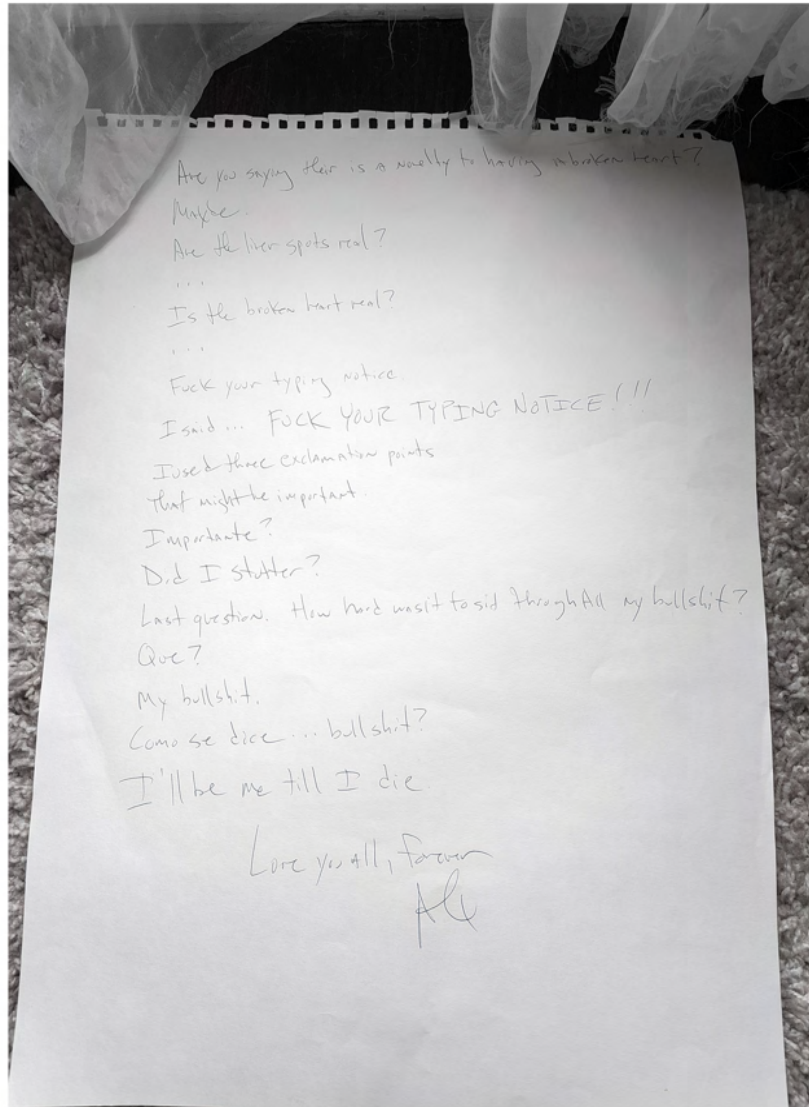 Are you saying their is a novelty to having a broken heart?
Maybe.
Are the liver spots real?
...
Is the broken heart real?
...
Fuck your typing notice.
I said... FUCK YOUR TYPING NOTICE!!!
I used three exclamation points
That might be important.
Importante?
Did I stutter?
Last question. How hard was it to sid through All my bullshit?
Que?
My bullshit.
Como se dice... bullshit?
I'll be me till I die.
Love you all, forever
Alex